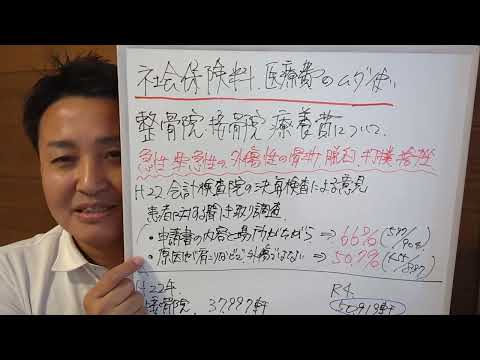 社会保険料、医療費のムダ使い
整骨院・接骨院 療養費について
急性・亜急性の外傷性の骨折 脱臼 打撲 捻挫
H22 会計検査院の決算検査による意見
患者に対する聞き取り調査
・申請書の内容と場所がながら ⇒ 66%
・原因が肩こりなどで外傷ではない ⇒ 50.7%
H22年
接骨院 37,997軒
R4
50,919軒